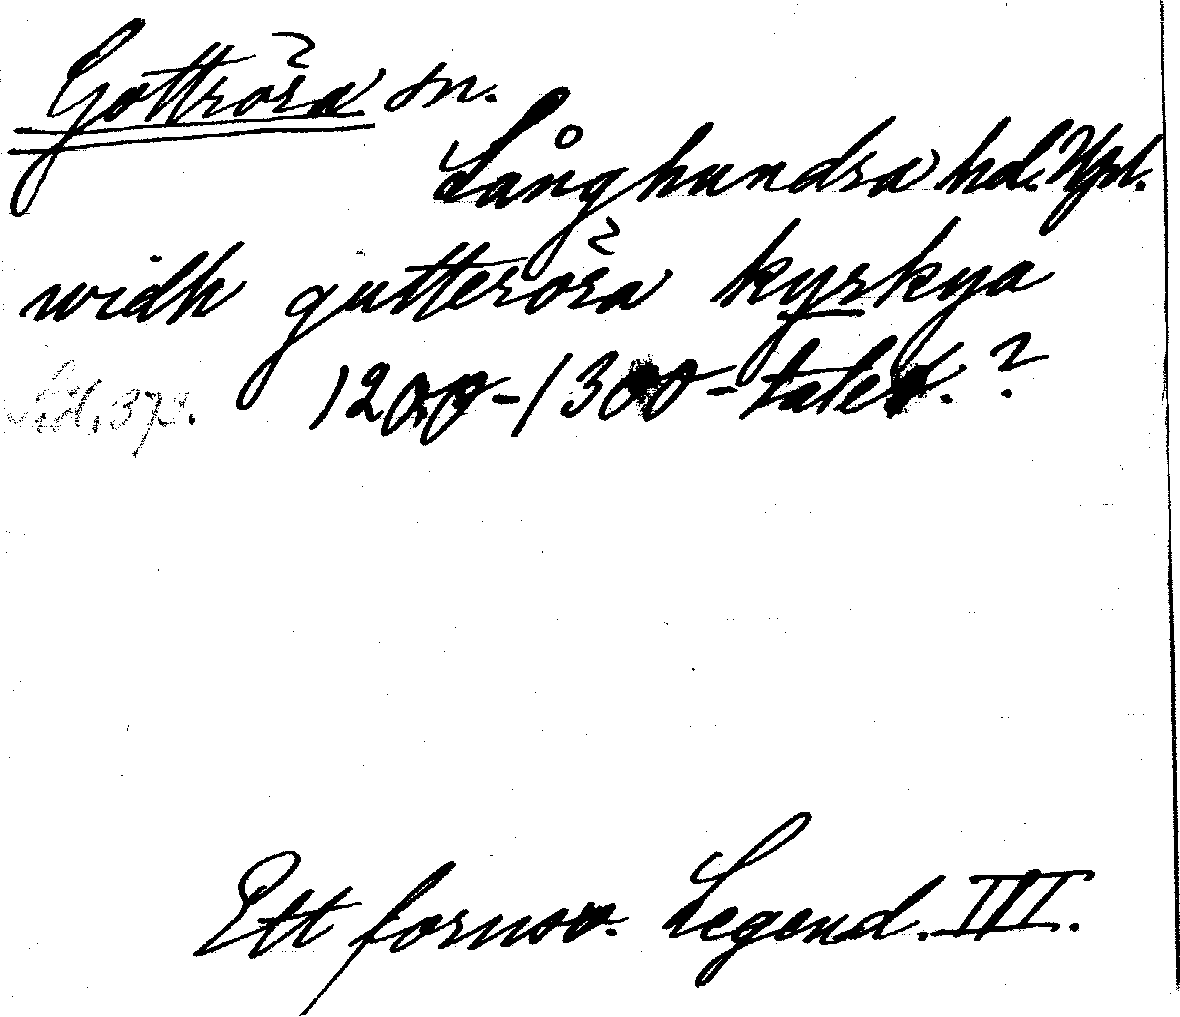 Gottröra sn.
Långhundra hd. Upl.
widh gutteröra kyrkyo
Sid. 373. 1200-1300-talet. ?
Ett fornsv. Legend. III.